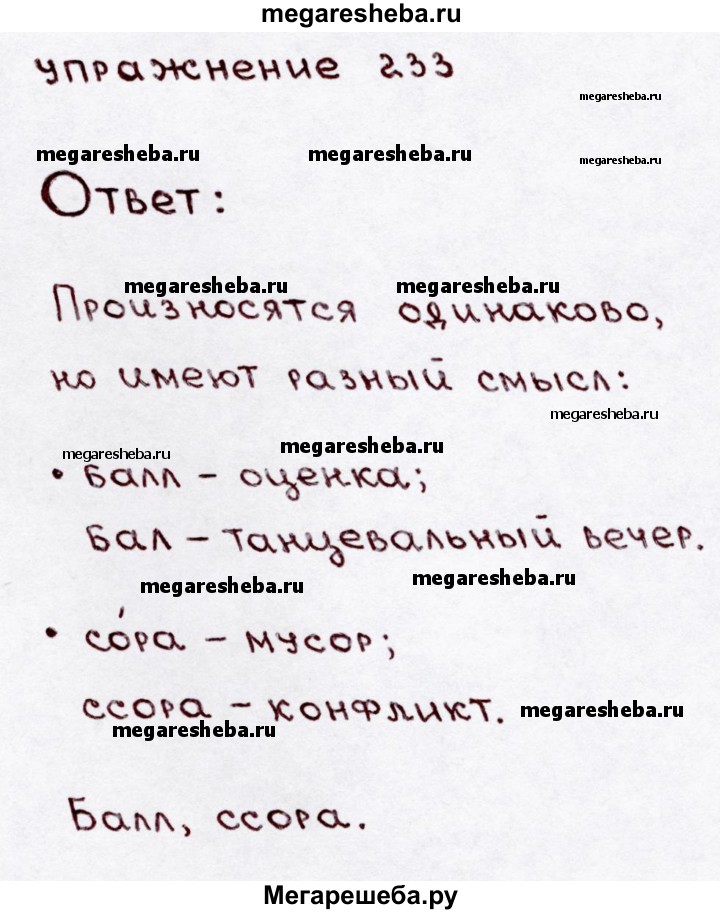 megaresheba.ru
упражнение 233
megaresheba.ru
megaresheba.ru megaresheba.ru megaresheba.ru
Ответ:
megaresheba.ru megaresheba.ru
Произносятся одинаково,
но имеют разный смысл:
megaresheba.ru
megaresheba.ru megaresheba.ru
• балл – оценка;
бал – танцевальный вечер.
megaresheba.ru megaresheba.ru
• со́ра – мусор;
ссора – конфликт. megaresheba.ru
megaresheba.ru
Балл, ссора.
Мегарешеба.ру